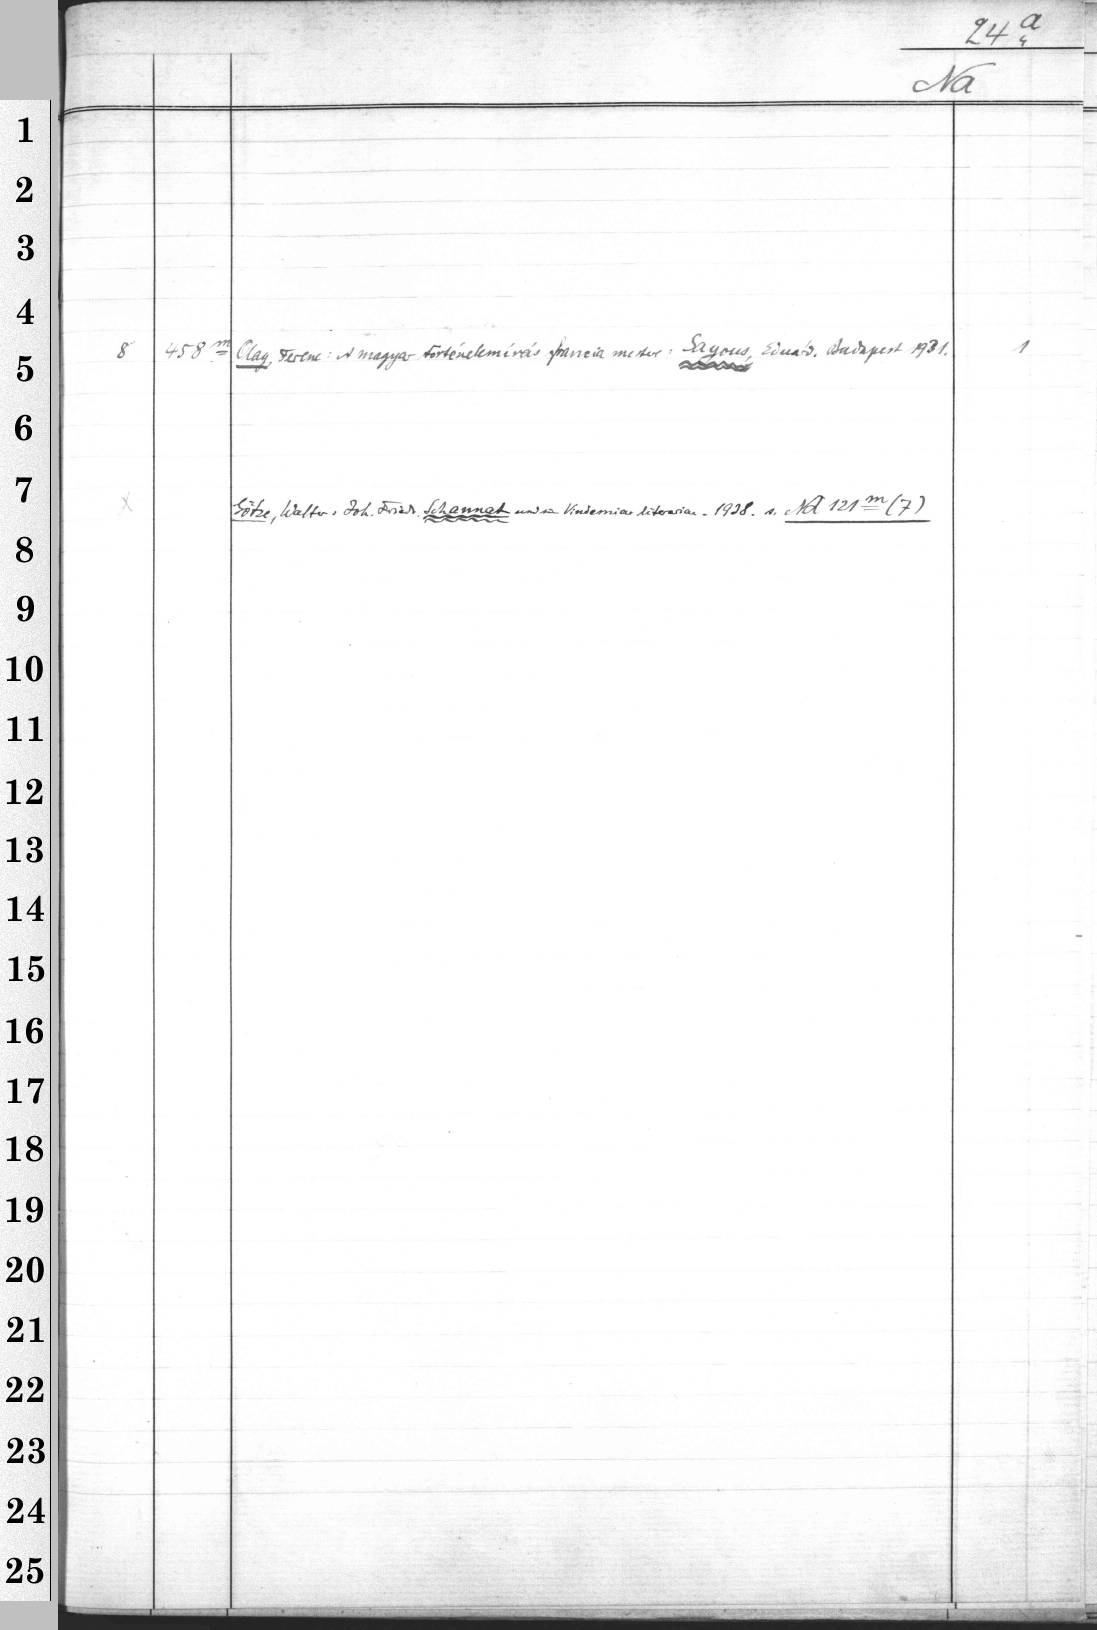 24 a
Na
1
2
3
4
8 458 m Olay, Ferenc: A magyar történelemírás francia mestere: Sayous, Eduárd. Budapest 1931. 1
5
6
7
X Götze, Walter: Joh. Friedr. Schannat und s. Vindemiae literariae. 1938. s. Nd 121 m (7)
8
9
10
11
12
13
14
15
16
17
18
19
20
21
22
23
24
25